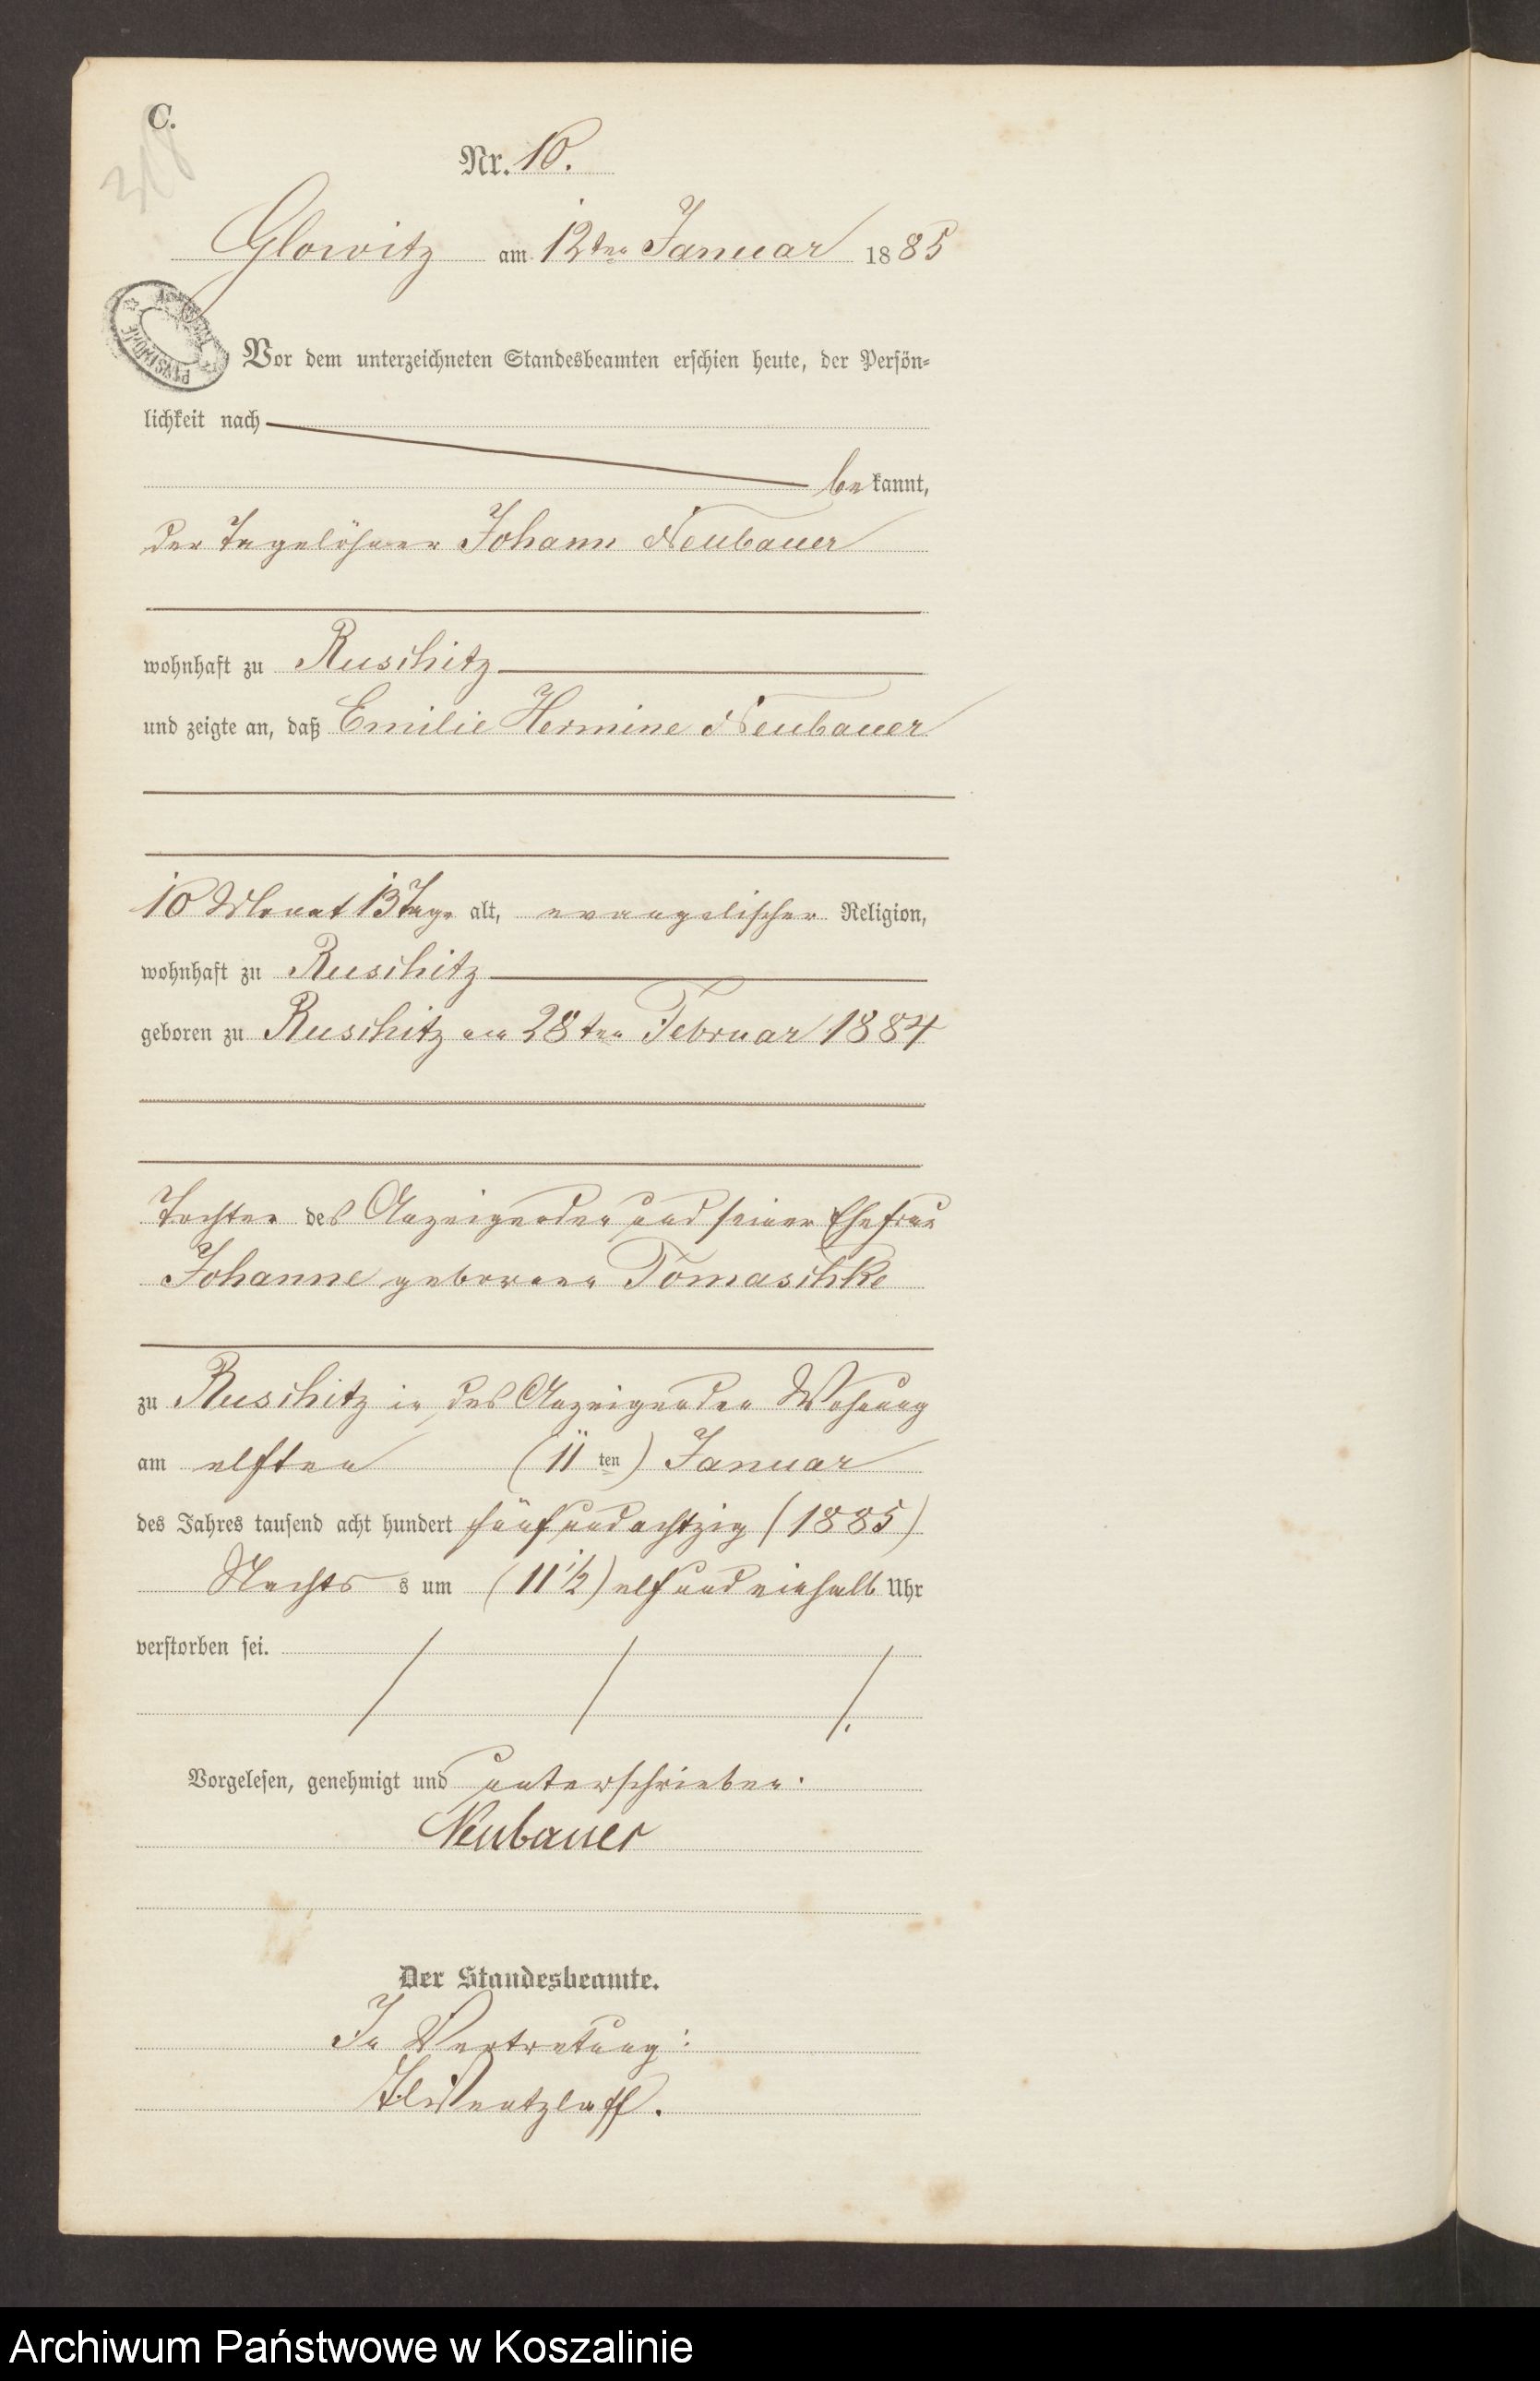 C.
318
Nr. 10.
Glowitz am 12ten Januar 1885
Vor dem unterzeichneten Standesbeamten erschien heute, der Persön=
lichkeit nach
bekannt,
der Tagelöhner Johann Neubauer
wohnhaft zu Ruschitz
und zeigte an, daß Emilie Hermine Neubauer
10 Monat 13 Tage alt, evangelischer Religion,
wohnhaft zu Ruschitz
geboren zu Ruschitz am 28ten Februar 1884
Tochter des Anzeigenden und seiner Ehefrau
Johanne geborene Tomaschke
zu Ruschitz in des Anzeigenden Wohnung
am elften (11ten) Januar
des Jahres tausend acht hundert fünfundachtzig (1885)
Nachts s um (11½) elfundeinhalb Uhr
verstorben sei.
Vorgelesen, genehmigt und unterschrieben.
Neubauer
Der Standesbeamte.
In Vertretung:
Wentzlaff.
Archiwum Państwowe w Koszalinie